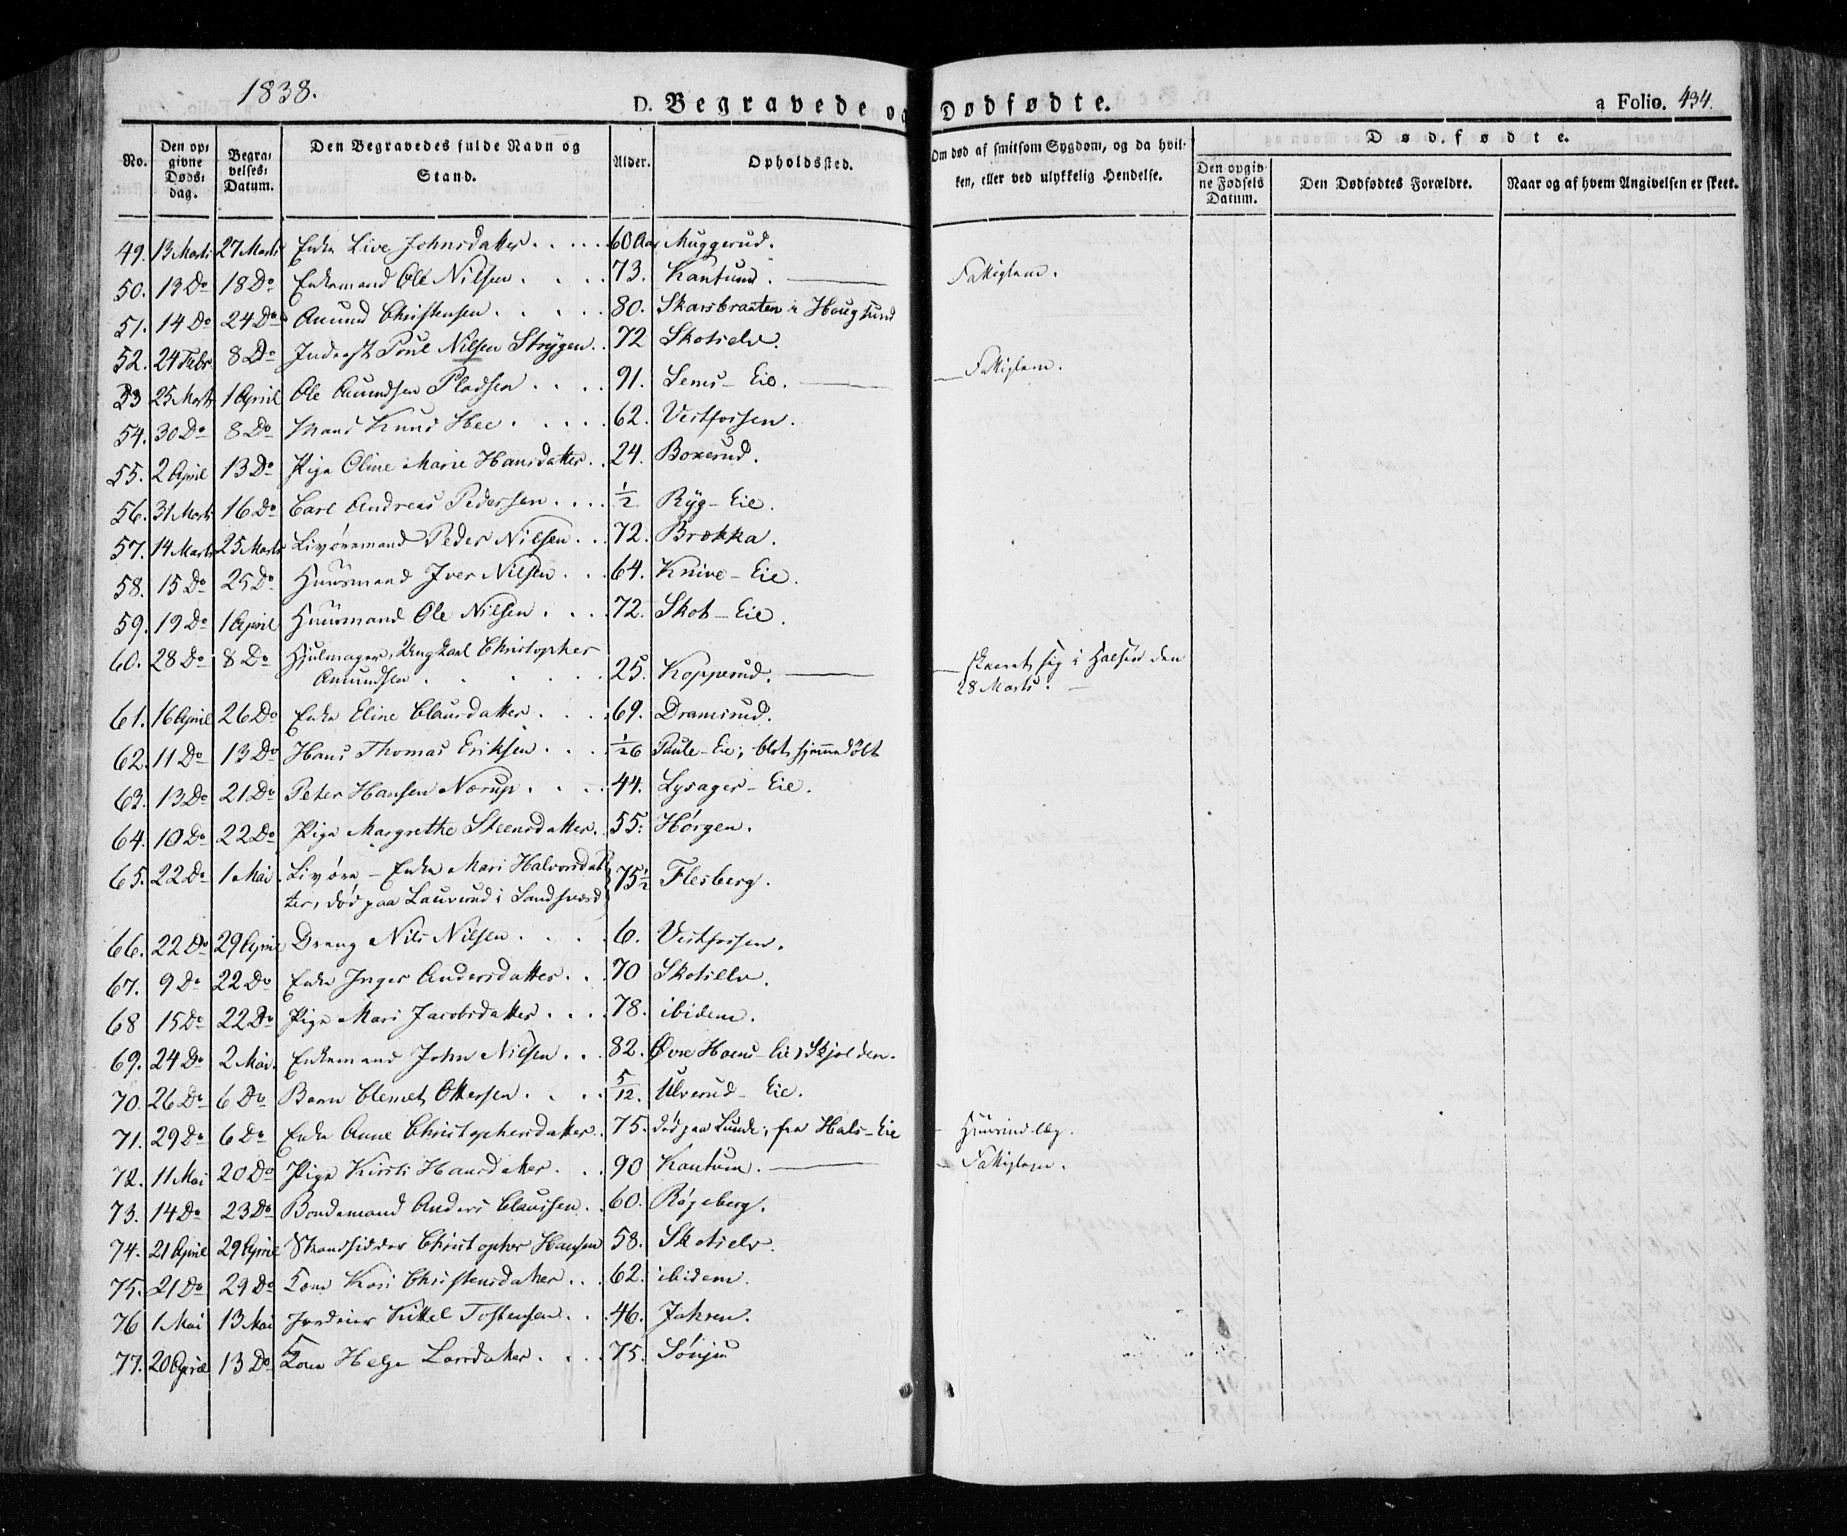 1838.
D. Begravede og Dødfødte.
a Folio. 434.
No.
Den opgivne Dødsdag.
Begravelses-Datum.
Den Begravedes fulde Navn og Stand.
Alder.
Opholdssted.
Om død af smitsom Sygdom, og da hvilken, eller ved ulykkelig Hendelse.
Dødfødte.
Den opgivne Fødsels Datum.
Den Dødfødtes Forældre.
Naar og af hvem Angivelsen er skeet.
49. 13 Marti 27 Marti Enke Live Johnsdatter 60 Aar Muggerud.
50. 13 Do 18 Do Enkemand Ole Nilsen 73. Kantund. Fattiglem.
51. 14 Do 24 Do Amund Christensen 80. Skarsbraaten i Hougsund
52. 24 Febr. 8 Do Inderst Poul Nilsen Strygen 72 Skotselv.
53 25 Marti 1 April Ole Amundsen Pladsen 91. Sems-Eie. Fattiglem.
54. 30 Do 8 Do Mand Knud Hee 62. Vestfossen.
55. 2 April 13 Do Pige Oline Marie Hansdatter 24. Boxerud.
56. 31 Marti 16 Do Carl Andreas Pedersen 1/2 Ryg-Eie.
57. 14 Marti 25 Marti Livøremand Peder Nilsen 72. Brækka.
58. 15 Do 25 Do Huusmand Iver Nilsen 64. Knive-Eie.
59. 19 Do 1 April Huusmand Ole Nilsen 72. Skot-Eie.
60. 28 Do 8 Do Hjulmager, Ungkarl Christopher
Amundsen 25. Kopperud. skaaret sig i Halsen den
28 Marts.
61. 16 April 26 Do Enke Eline Clausdatter 69. Dramsrud.
62. 11 Do 13 Do Hans Thomas Eriksen 1/26 Paule-Eie, blot hjemmedøbt
63. 13 Do 21 Do Peter Hansen Nørup 44. Lysager-Eie.
64. 10 Do 22 Do Pige Margrethe Steensdatter 55. Hørgen.
65. 22 Do 1 Mai Livøre-Enke Mari Halvorsdat
ter, død paa Lauverud i Sandsværd 75 1/2 Flesberg.
66. 22 Do 29 April Dreng Nils Nilsen 6. Vestfossen.
67. 9 Do 22 Do Enke Inger Andersdatter 70 Skotselv.
68 15 Do 22 Do Pige Mari Jacobsdatter 78. ibidem.
69. 24 Do 2 Mai. Enkemand John Nilsen 82. Øvre Hoens-Eie, Skjolden.
70. 26 Do 6 Do Barn Clemet Ottersen 5/12. Ulverud-Eie.
71. 29 Do 6 Do Enke Anne Christophersdatter 75. død paa Lunde, fra Hals-Eie
72. 11 Mai 20 Do Pige Kirsti Hansdatter 90 Kantum. Fattiglem.
73. 14 Do 23 Do Bondemand Anders Claussen 60. Røgeberg.
74. 21 April 29 April Strandsidder Christopher Hansen 58. Skotselv.
75. 21 Do 29 Do Kone Kari Christensdatter 62. ibidem.
76 1 Mai 13 Mai Jordeier Kittel Tostensen 46. Jahren.
77. 20 April 13 Do Kone Helge Larsdatter 75. Sønju